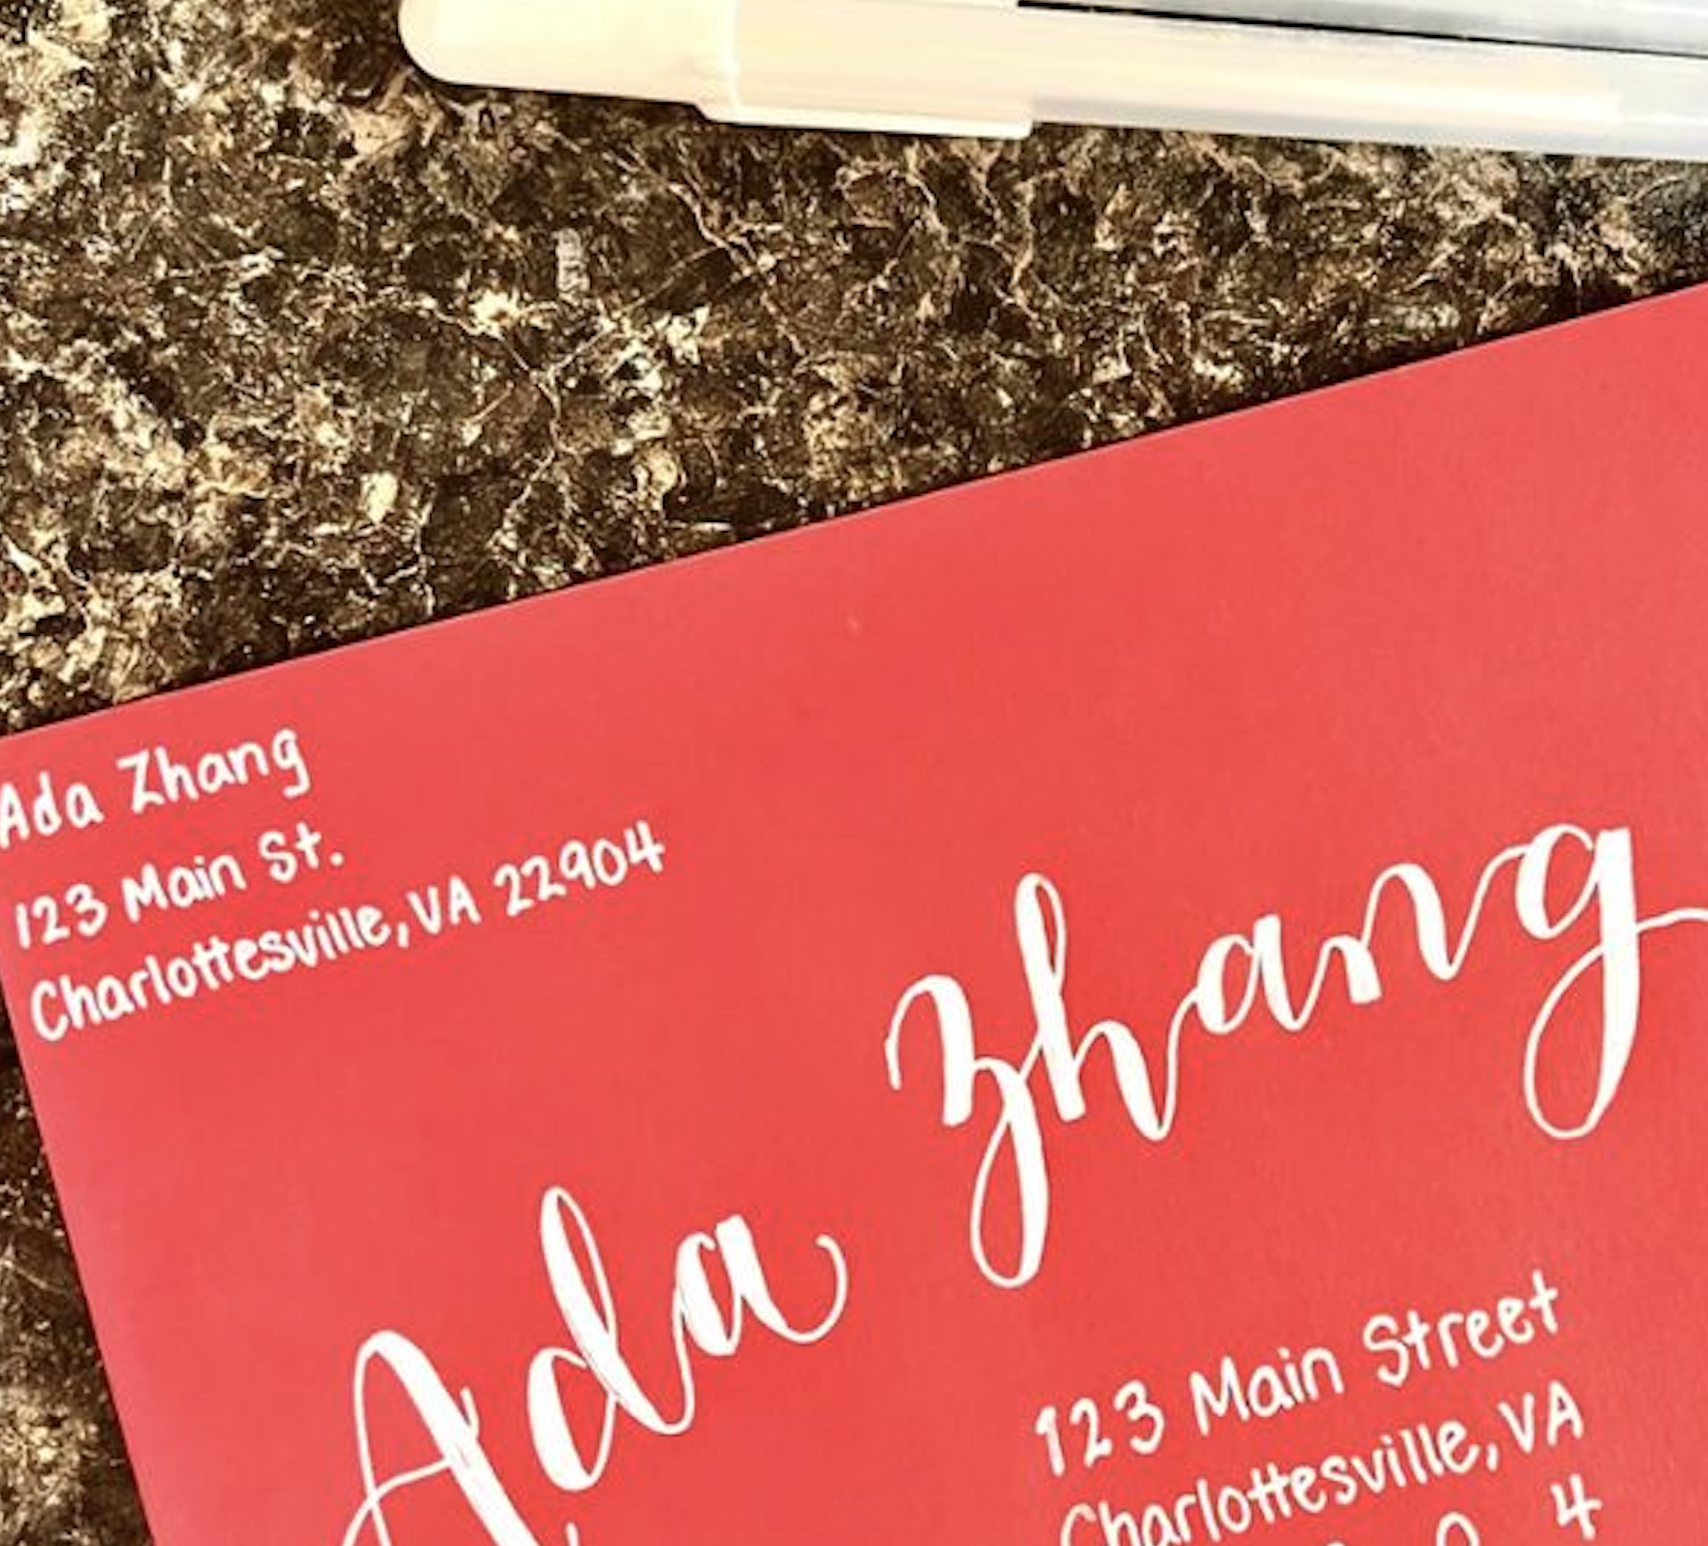 Ada Zhang
123 Main St.
Charlottesville, VA 22904
Ada Zhang
123 Main Street
Charlottesville, VA
0 4